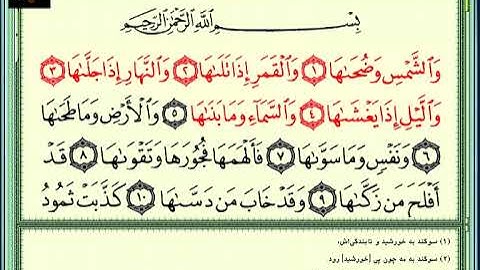 بِسْمِ اللَّهِ الرَّحْمَٰنِ الرَّحِيمِ
وَالشَّمْسِ وَضُحَىٰهَا ١ وَالْقَمَرِ إِذَا تَلَىٰهَا ٢ وَالنَّهَارِ إِذَا جَلَّىٰهَا ٣
وَالَّيْلِ إِذَا يَغْشَىٰهَا ٤ وَالسَّمَاءِ وَمَا بَنَىٰهَا ٥ وَالْأَرْضِ وَمَا طَحَىٰهَا
٦ وَنَفْسٍ وَمَا سَوَّىٰهَا ٧ فَأَلْهَمَهَا فُجُورَهَا وَتَقْوَىٰهَا ٨ قَدْ
أَفْلَحَ مَن زَكَّىٰهَا ٩ وَقَدْ خَابَ مَن دَسَّىٰهَا ١٠ كَذَّبَتْ ثَمُودُ
(۱) سوگند به خورشید و تابندگی‌اش،
(۲) سوگند به مه چون پی [خورشید] رود